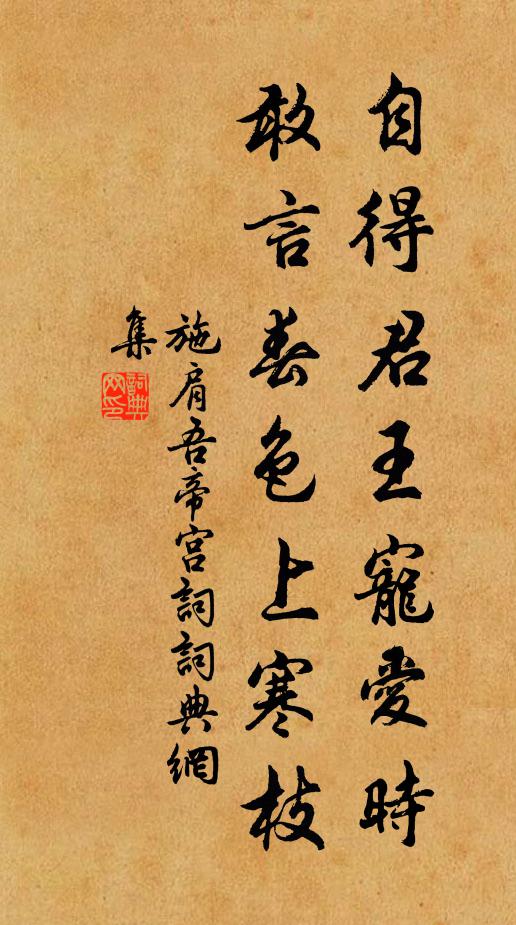 自得君王寵愛時
敢言春色上寒枝
施肩吾帝宮詞詞典網
集
詞典
网印